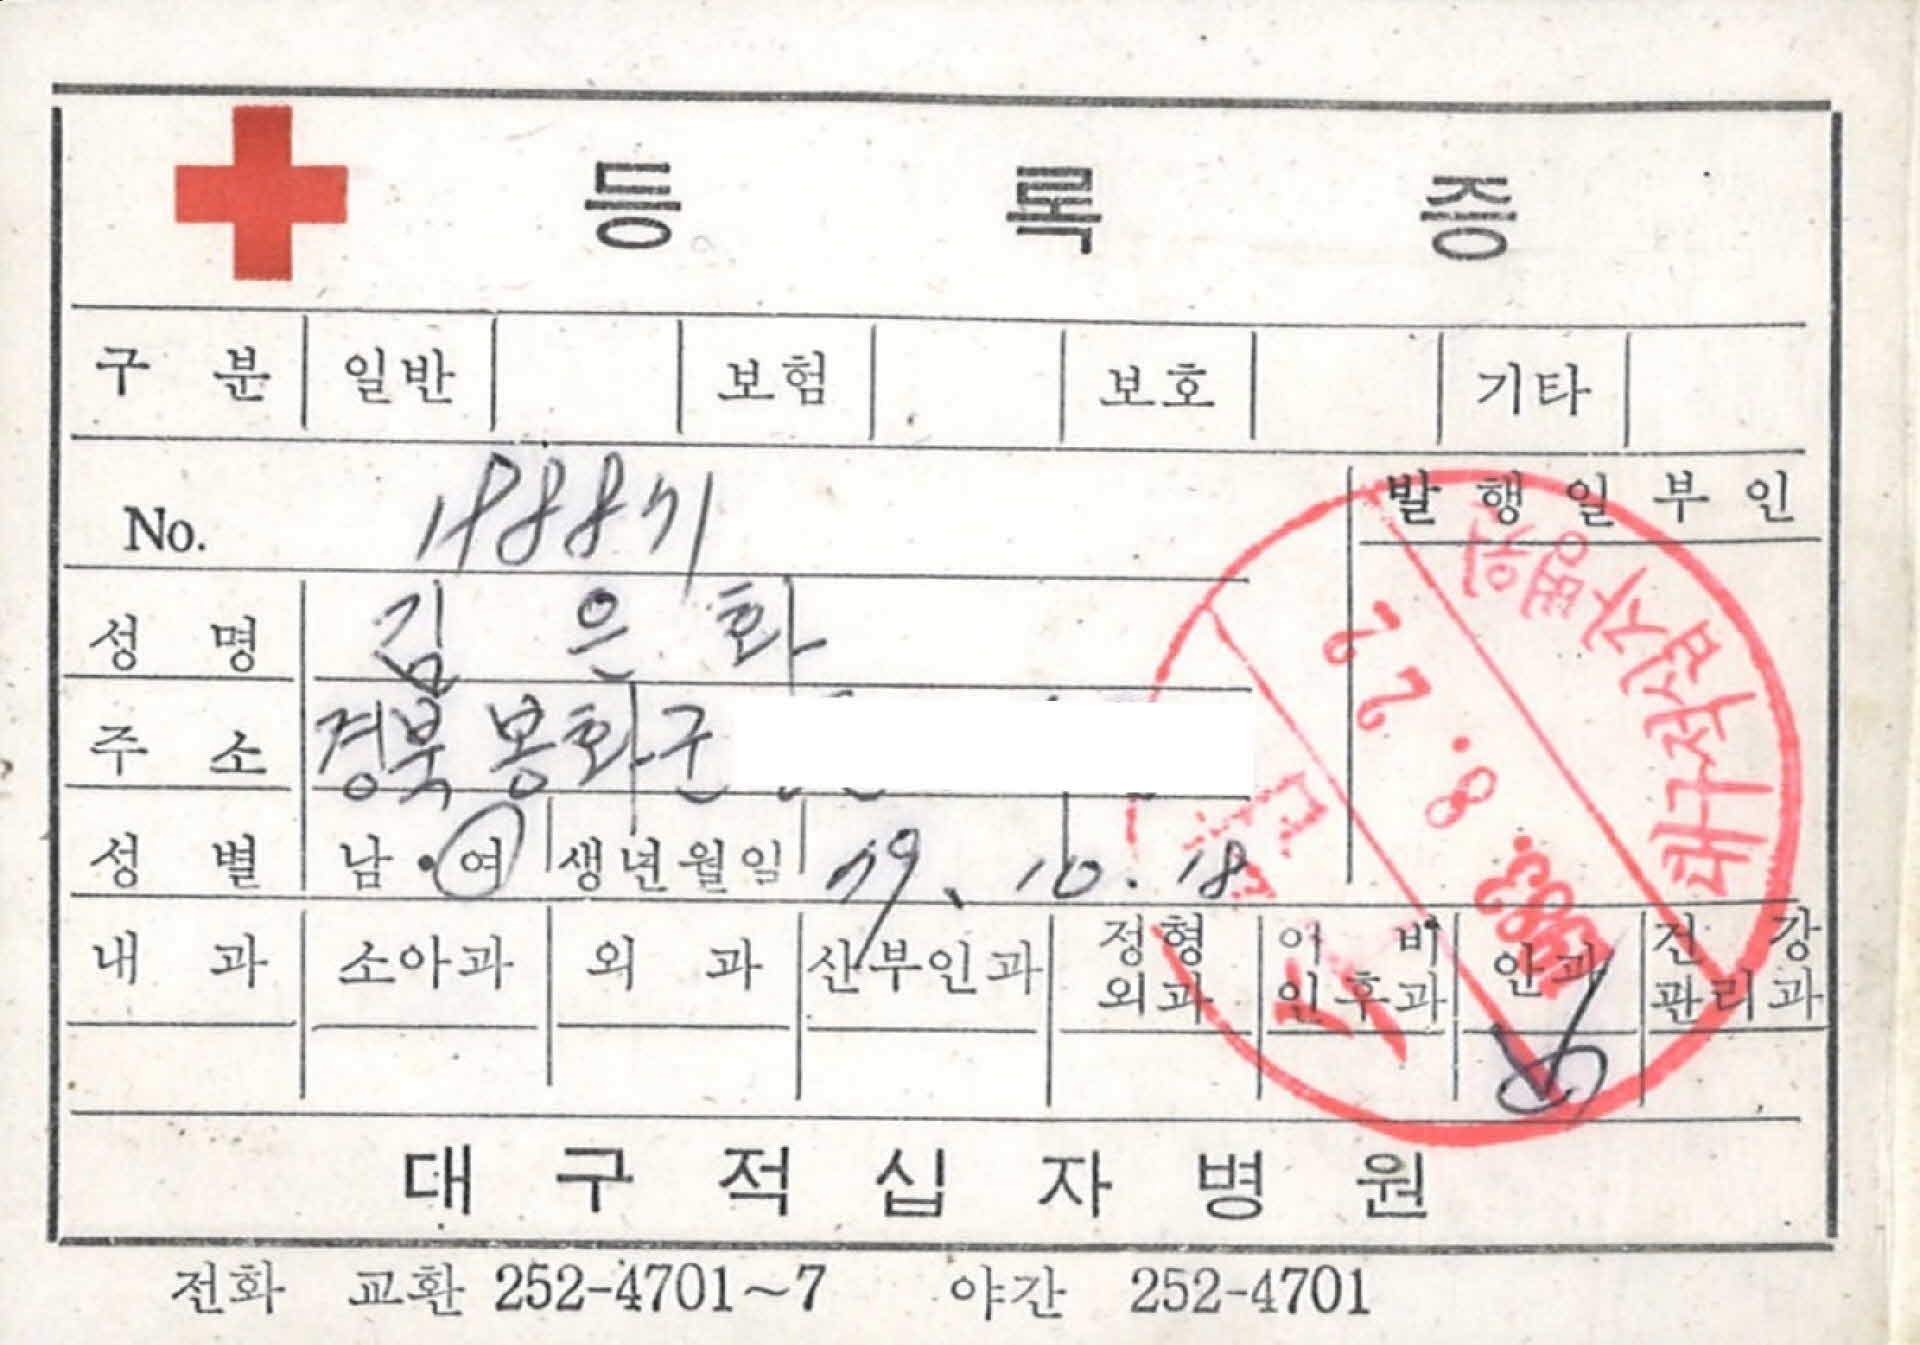 등 록 증
구 분 일반 보험 보호 기타
No. 198871
발 행 일 부 인
성 명 김 은 화
주 소 경북 봉화군
성 별 남 · 여 생년월일 79. 10. 18
내 과 소아과 외 과 산부인과 정형외과 이비인후과 안과 건강관리과
대구적십자병원
1983. 8. 22
대 구 적 십 자 병 원
전화 교환 252-4701~7 야간 252-4701